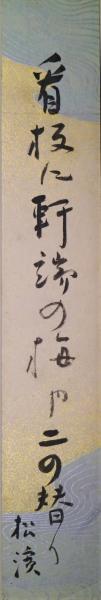 看板に軒端の梅や二の替り
松濱